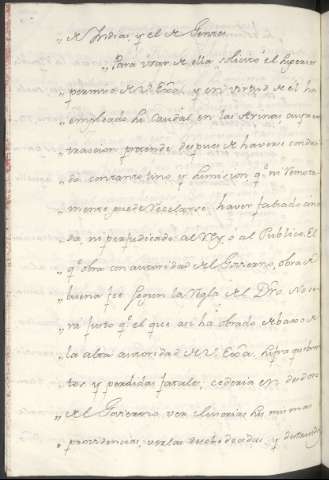 „ de Indias, y el de Genres
„ Para usar de ella solicitó el
„ permiso de V. Exa., y en virtud de él ha
„ empleado su Caudal en las Arinas cuya ex
„ traccion pretende despues de haverse condu
„ do con tanto tino y sumision qe. ni remota
„ mente puede recelarse haver faltado en na
„ da ni perjudicado al Rey ó al Publico. El
„ qe. obra con autoridad del Govierno, obra de
„ buena feé segun la Regla del Dro. No se
„ rá justo qe. el que asi ha obrado debaxo de
„ la alta autoridad de V. Exa. sufra quebran
„ tos y perdidas fatales, cederia en desdoro
„ del Govierno ver ilusorias sus mismas
„ providencias, verlas desobedecidas, y